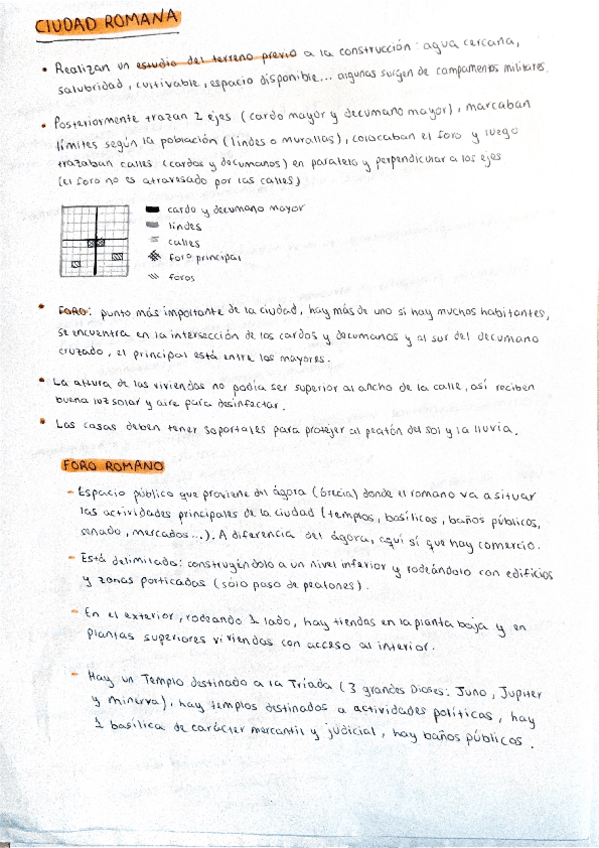 CIUDAD ROMANA
• Realizan un estudio del terreno previo a la construcción: agua cercana,
salubridad, cultivable, espacio disponible... algunas surgen de campamentos militares.
• Posteriormente trazan 2 ejes (cardo mayor y decumano mayor), marcaban
límites según la población (lindes o murallas), colocaban el foro y luego
trazaban calles (cardos y decumanos) en paralelo y perpendicular a los ejes
(el foro no es atravesado por las calles)
cardo y decumano mayor
lindes
calles
foro principal
foros
• FORO: punto más importante de la ciudad, hay más de uno si hay muchos habitantes,
se encuentra en la intersección de los cardos y decumanos y al sur del decumano
cruzado, el principal está entre los mayores.
• La altura de las viviendas no podía ser superior al ancho de la calle, así reciben
buena luz solar y aire para desinfectar.
• Las casas deben tener soportales para protejer al peatón del sol y la lluvia.
FORO ROMANO
- Espacio público que proviene del ágora (Grecia) donde el romano va a situar
las actividades principales de la ciudad (templos, basílicas, baños públicos,
senado, mercados...). A diferencia del ágora, aquí sí que hay comercio.
- Está delimitado: construyéndolo a un nivel inferior y rodeándolo con edificios
y zonas porticadas (sólo paso de peatones).
- En el exterior, rodeando 1 lado, hay tiendas en la planta baja y en
plantas superiores viviendas con acceso al interior.
- Hay un Templo destinado a la Tríada (3 grandes Dioses: Juno, Jupiter
y minerva), hay templos destinados a actividades políticas, hay
1 basílica de carácter mercantil y judicial, hay baños públicos.